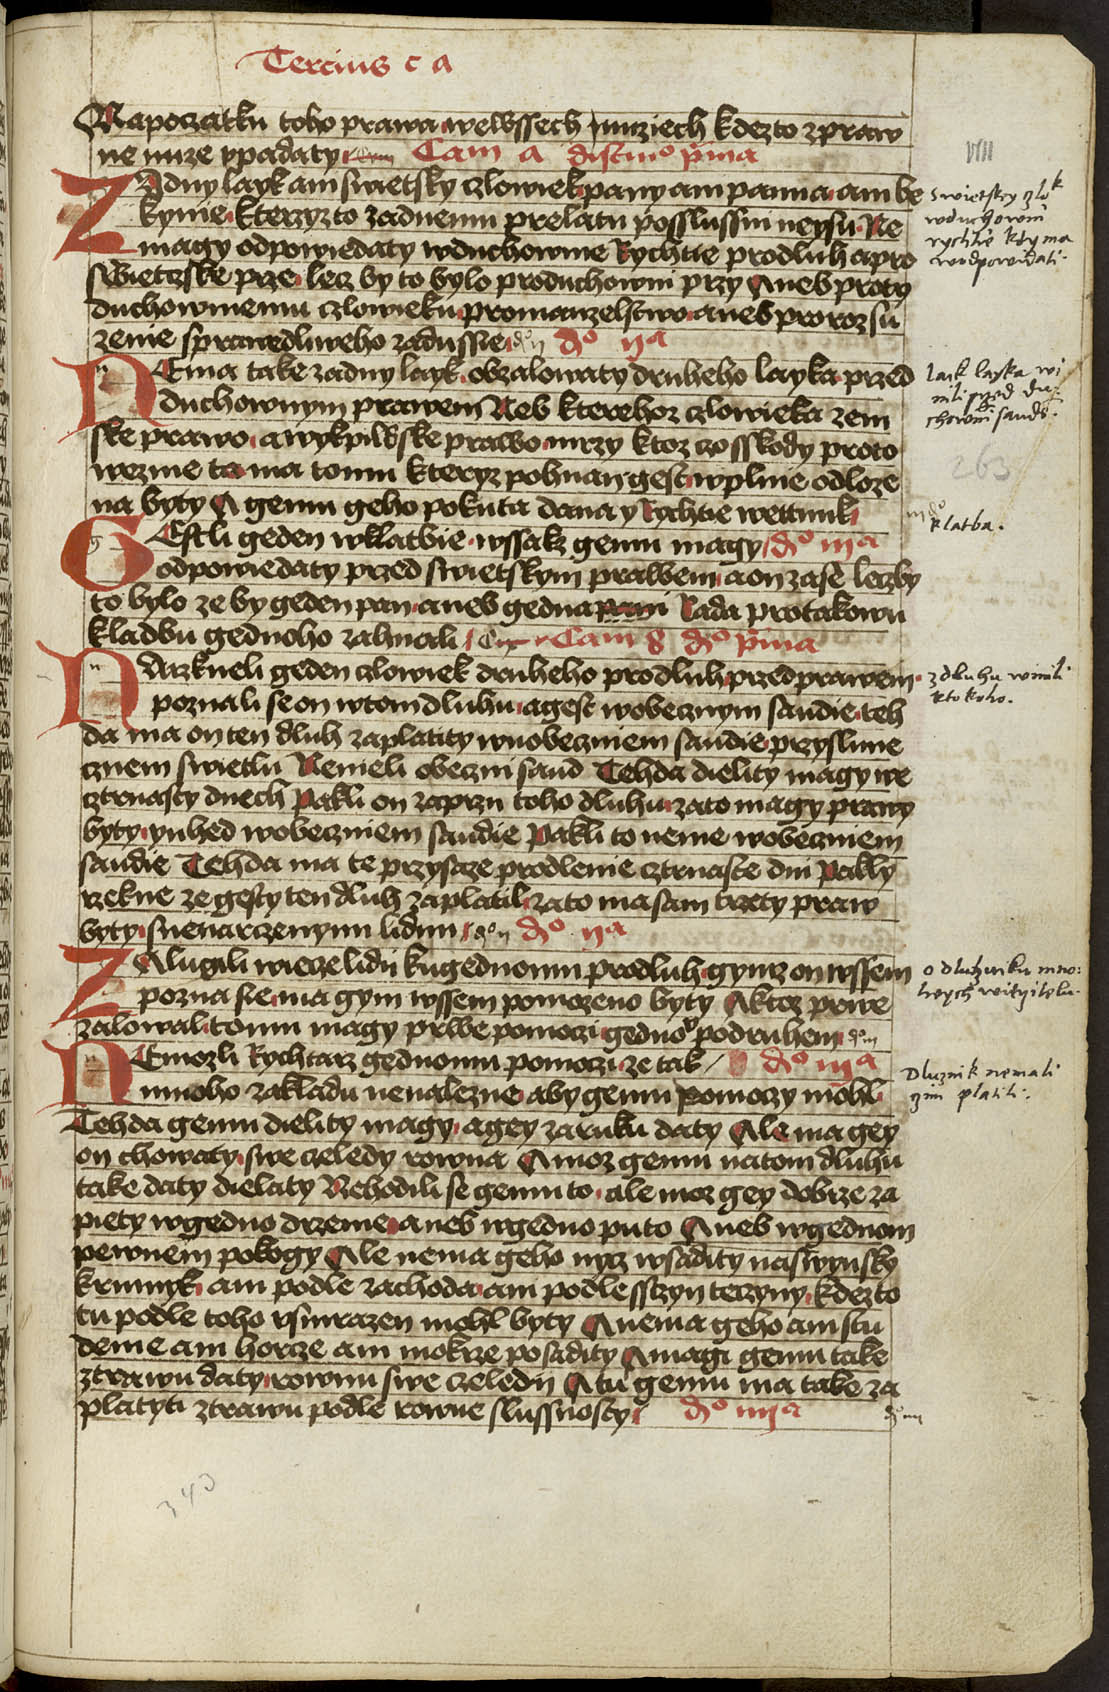 Tercius c a
Napoczatku toho prawa welbssech muziech kdezto zpraw
ne muze vpadaty Cam a distinco prima
ZAdny layk ani swietsky czlowiek pany ani panna ani be
kynie kterzyzto zadnemu prelatu posslussni neysu Ne
magy odpowiedaty wduchownie Rychtie prodluh apro
swietzske prze lecz by to bylo produchowni przy Aneb proty
duchowniemu czlowieku promanzelstwo aneb prorozsu
zenie sprawedliweho zadussie do ij do ija
NEma take zadny layk obzalowaty druheho layka przed
duchownym prawem Neb kterehoz czlowieka zem
ske prawo awykpilbske prawo mrzy ktoz czo sskody proto
wezme ta ma tomu kteryz pohnan gest wplnie odloze
na byty A gemu geho pokuta dana y Rychtie wettunk
GEstli geden wklatbie wssak gemu magy do iija
odpowiedaty przed swietskym prawem aon zase leczby
to bylo ze by geden pan aneb gedna Rada protakowu
kladbu gednoho zahnali Cam 8 do prima
NArzkneli geden czlowiek druheho prodluh przed prawem
poznali se on wtom dluhu agest wobecznym saudie teh
da ma on ten dluh zaplatity wnobeczniem saudie przyslune
cznem swietlu Nenieli obeczni saud Tehda dielity magy we
cztrnasty dnech Pakli on zaprzu toho dluhu zato magy prawy
byty ynhed wobeczniem saudie Pakli to neme wobeczniem
saudie Tehda ma te przysaze prodlenie cztrnaste dni Pakly
rzekne ze gesty ten dluh zaplatil zato ma sam trzety praw
byty snenarczenymi lidmi do ij do ija
ZAlugili wieczelidij kugednomu prodluh gymz on wssem
pozna sie ma gym wssem pomozeno byty A ktoz prwe
zalowal tomu magy prwe pomoczi gedno podruhem do iij
NEmozli Rychtarz gednomu pomoczi ze tak do iija
mnoho zakladu nenalezne aby gemu pomoczy mohl
Tehda gemu dielity magy agey zaruku daty Ale ma gey
on chowaty swe czeledy rowna A moz gemu natom dluhu
take daty dielaty Nehodili se gemu to ale moz gey dobrze za
piety wgedno drzeme aneb wgedno puto Aneb wgednom
pewnem pokogy Ale nema geho nycz wsadity naswynsky
krmnyk ani podle zachoda ani podle sstzyn teczyny kdezto
tu podle toho vsmrazen mohl byty A nema geho ani stu
denie ani horcze ani mokrze posadity A magi gemu take
ztrawu daty rownu swe czeledij A tu gemu ma take za
platyti ztrawu podle rowne slussnosty do iiija
VIII
swietsky czlok
wduchowni
rychtie kdy ma
wodpowidati.
laik layka wi
niti przed du
chowni saudo.
263
iij do
klatba.
zdluhu winiti
kto koho.
o dluzniku mno:
hych wierzitelu.
Dluznik nemali
czim platiti.
do iiij
343